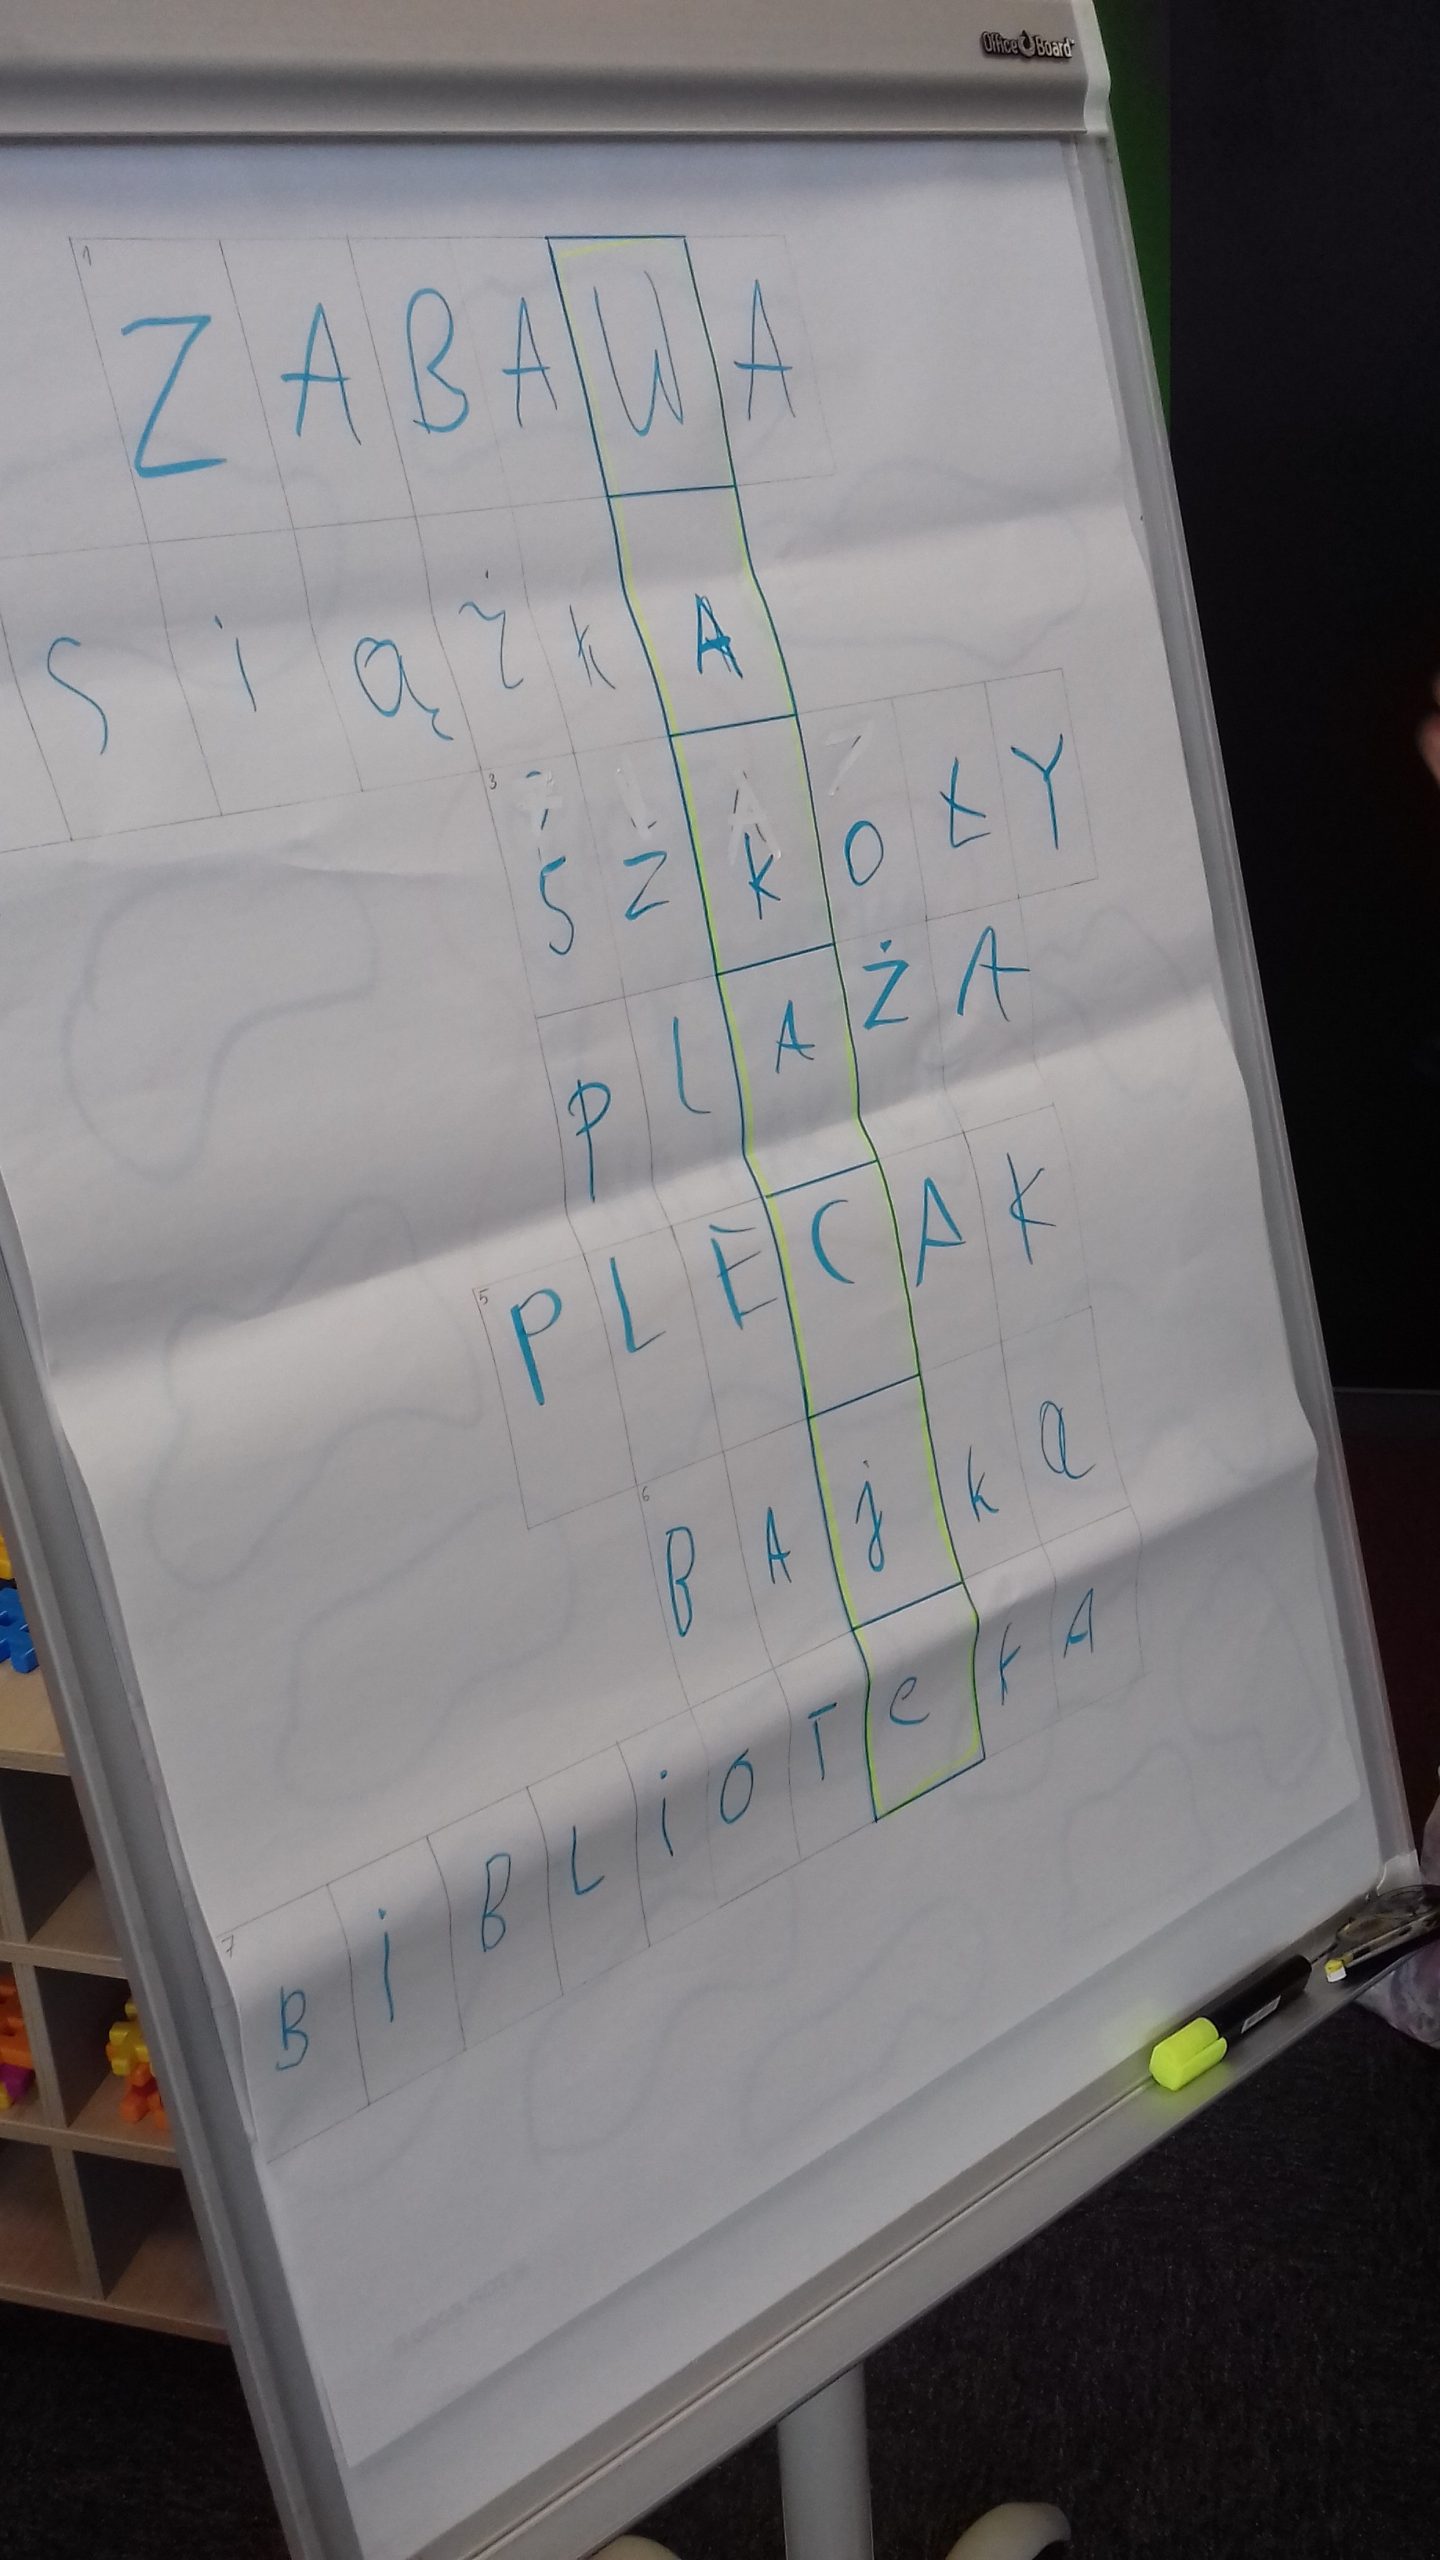 Office Board
1
ZABAWA
SiążkA
3
SZKOŁY
PLAŻA
5
PLECAK
6
BAjka
7
BiBLiOTeKA